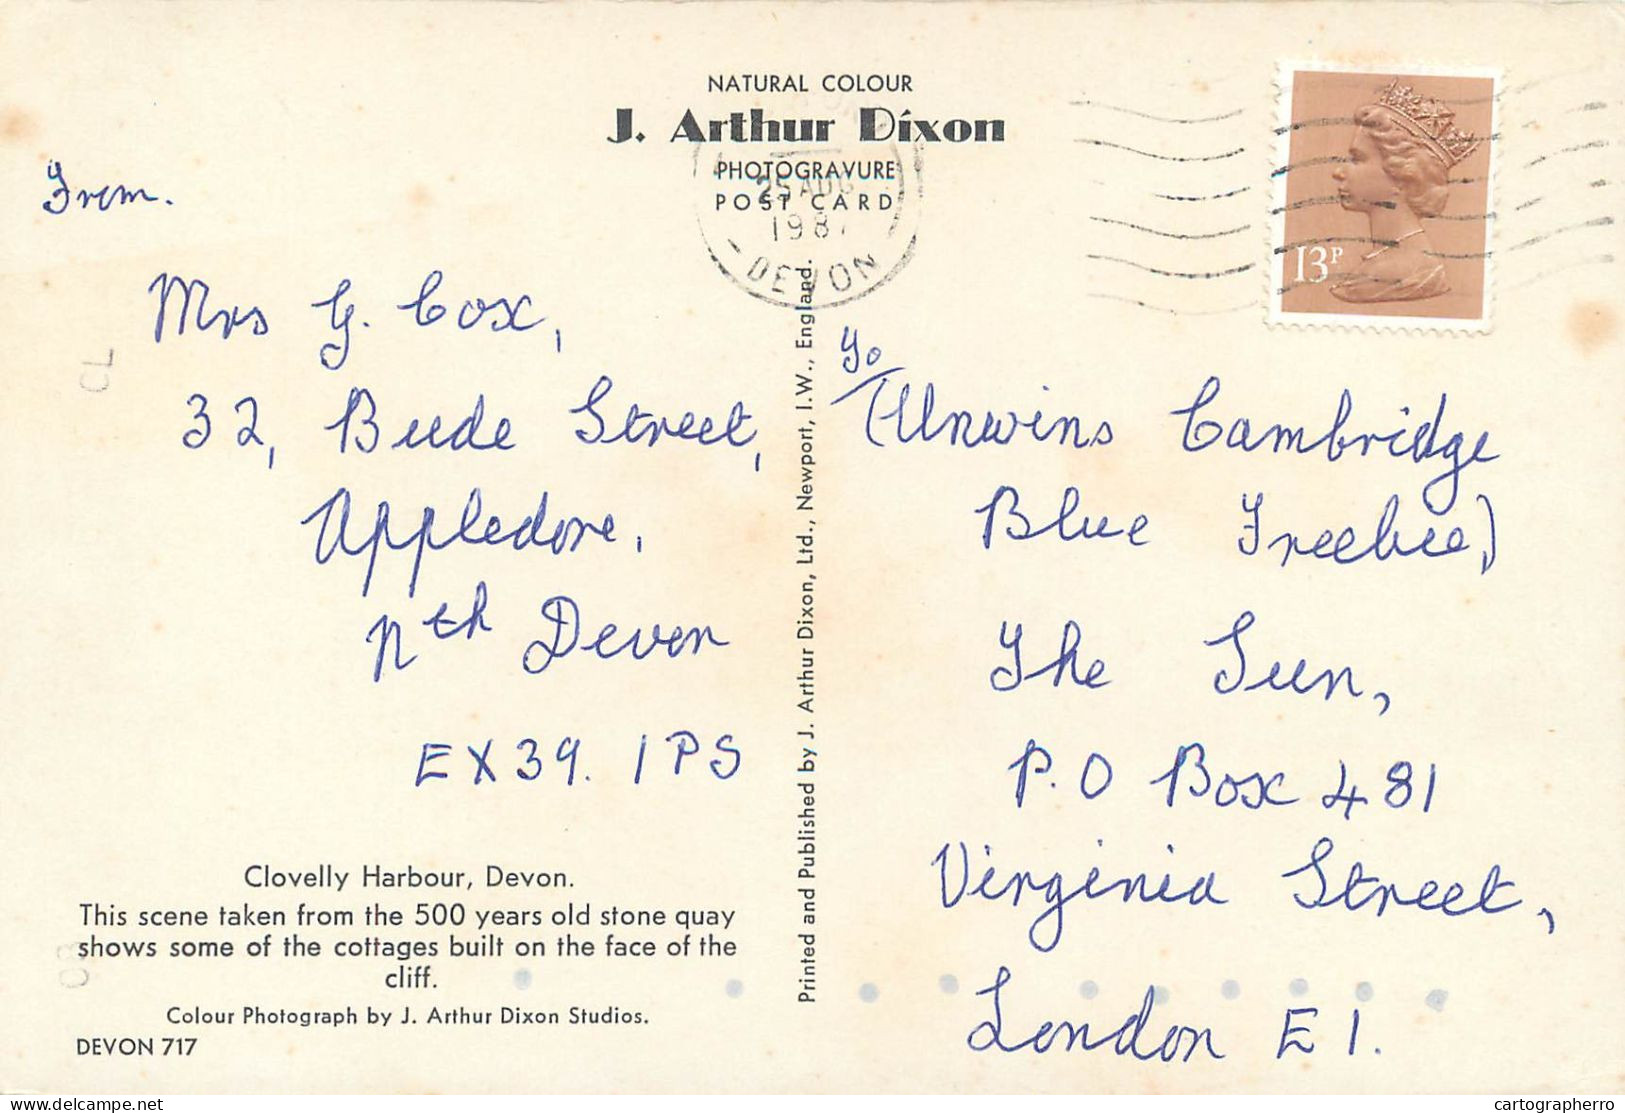 NATURAL COLOUR
J. Arthur Dixon
PHOTOGRAVURE
POST CARD
25 AUG
1987
DEVON
13P
From.
Mrs G. Cox,
32, Bude Street,
Appledore,
Nth Devon
EX39. 1PS
CL
Clovelly Harbour, Devon.
This scene taken from the 500 years old stone quay
shows some of the cottages built on the face of the
cliff.
Colour Photograph by J. Arthur Dixon Studios.
DEVON 717
Printed and Published by J. Arthur Dixon, Ltd., Newport, I.W., England.
To
(Unwins Cambridge
Blue Freebee)
The Sun,
P.O Box 481
Virginia Street,
London E1.
delcampe.net
cartographerro